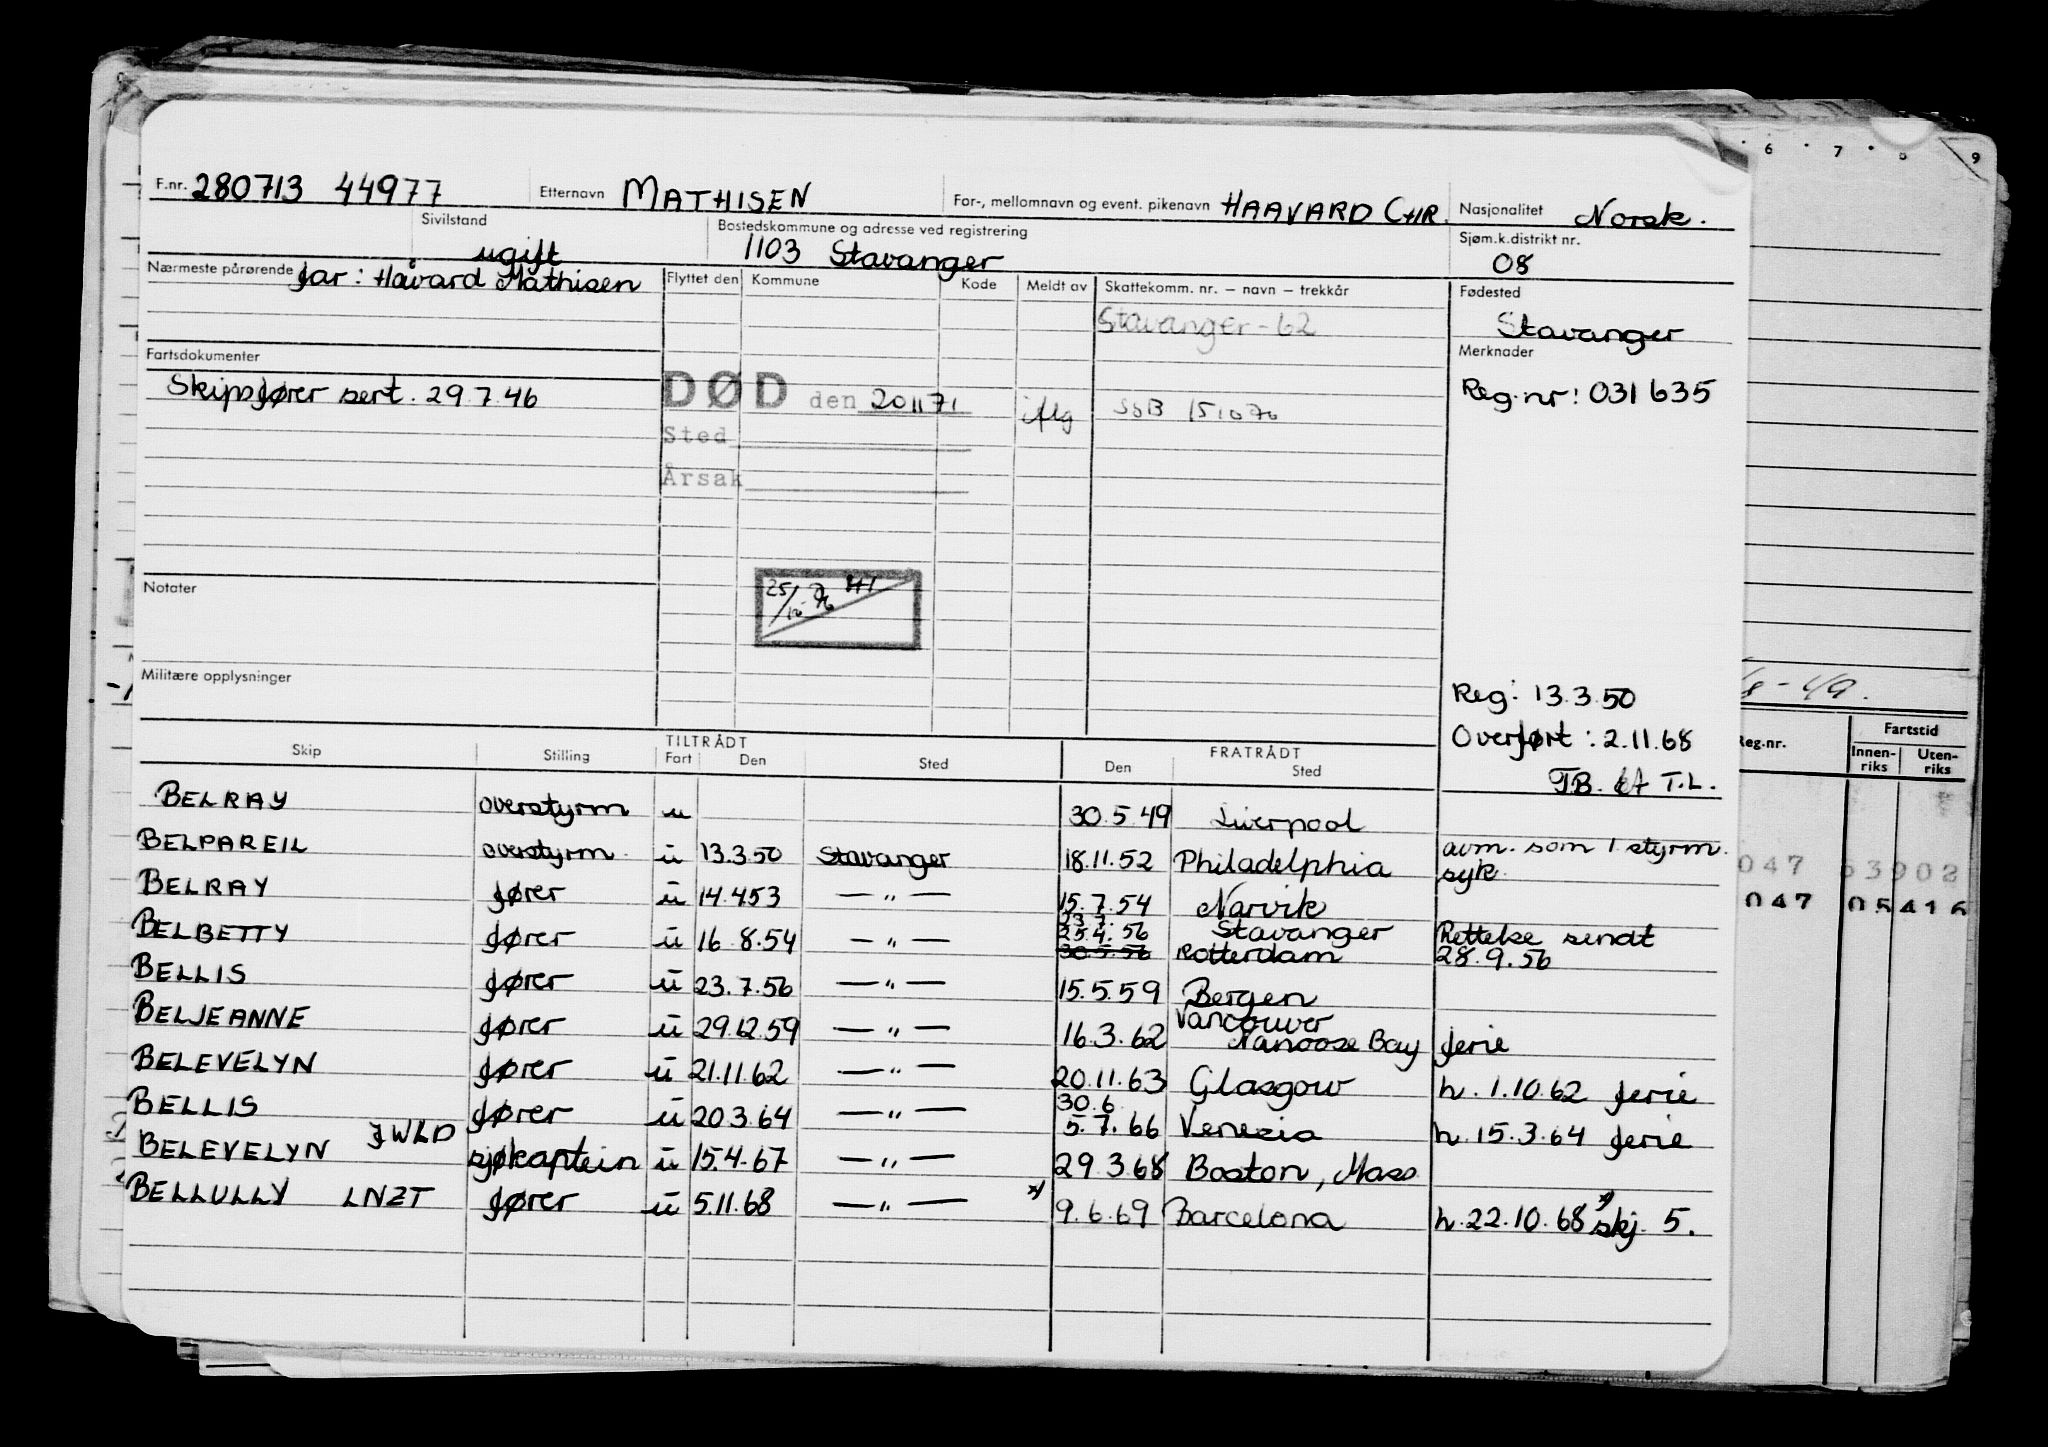 F.nr. 280713 44977 Etternavn MATHISEN For-, mellomnavn og event. pikenavn HAAVARD CHR. Nasjonalitet Norsk.
Sivilstand ugift Bostedskommune og adresse ved registrering 1103 Stavanger Sjøm.k.distrikt nr. 08
Nærmeste pårørende far: Håvard Mathisen Flyttet den Kommune Kode Meldt av Skattekomm. nr. – navn – trekkår Fødested
Stavanger-62 Stavanger
Fartsdokumenter Merknader
Skipsfører sert. 29.7.46 DØD den 201171 SØB 151070 Reg.nr: 031635
Sted
Årsak
Notater
25/10
Militære opplysninger
Reg: 13.3.50
Overført: 2.11.68
T.B. T.L.
Skip Stilling TILTRÅDT Fart Den Sted FRATRÅDT Den Sted
BELRAY overstyrm u 30.5.49 Liverpool
BELPAREIL overstyrm. u 13.3.50 Stavanger 18.11.52 Philadelphia avm. som 1 styrm. syk.
BELRAY fører u 14.4.53 — " — 15.7.54 Narvik
BELBETTY fører u 16.8.54 — " — 23.7. 25.4.56 Stavanger Rettelse sendt
30.5.56 Rotterdam 28.9.56
BELLIS fører u 23.7.56 — " — 15.5.59 Bergen
BELJEANNE fører u 29.12.59 — " — 16.3.62 Vancouver Nanoose Bay ferie
BELEVELYN fører u 21.11.62 — " — 20.11.63 Glasgow h. 1.10.62 ferie
BELLIS fører u 20.3.64 — " — 30.6. 5.7.66 Venezia h. 15.3.64 ferie
BELEVELYN JWLD sjøkaptein u 15.4.67 — " — 29.3.68 Boston, Mass.
BELLULLY LNZT fører u 5.11.68 — " — *) 9.6.69 Barcelona h. 22.10.68 *) skj. 5.
6 7 8 9
Reg.nr. Fartstid
Innen-riks Uten-riks
047 53902
047 05416